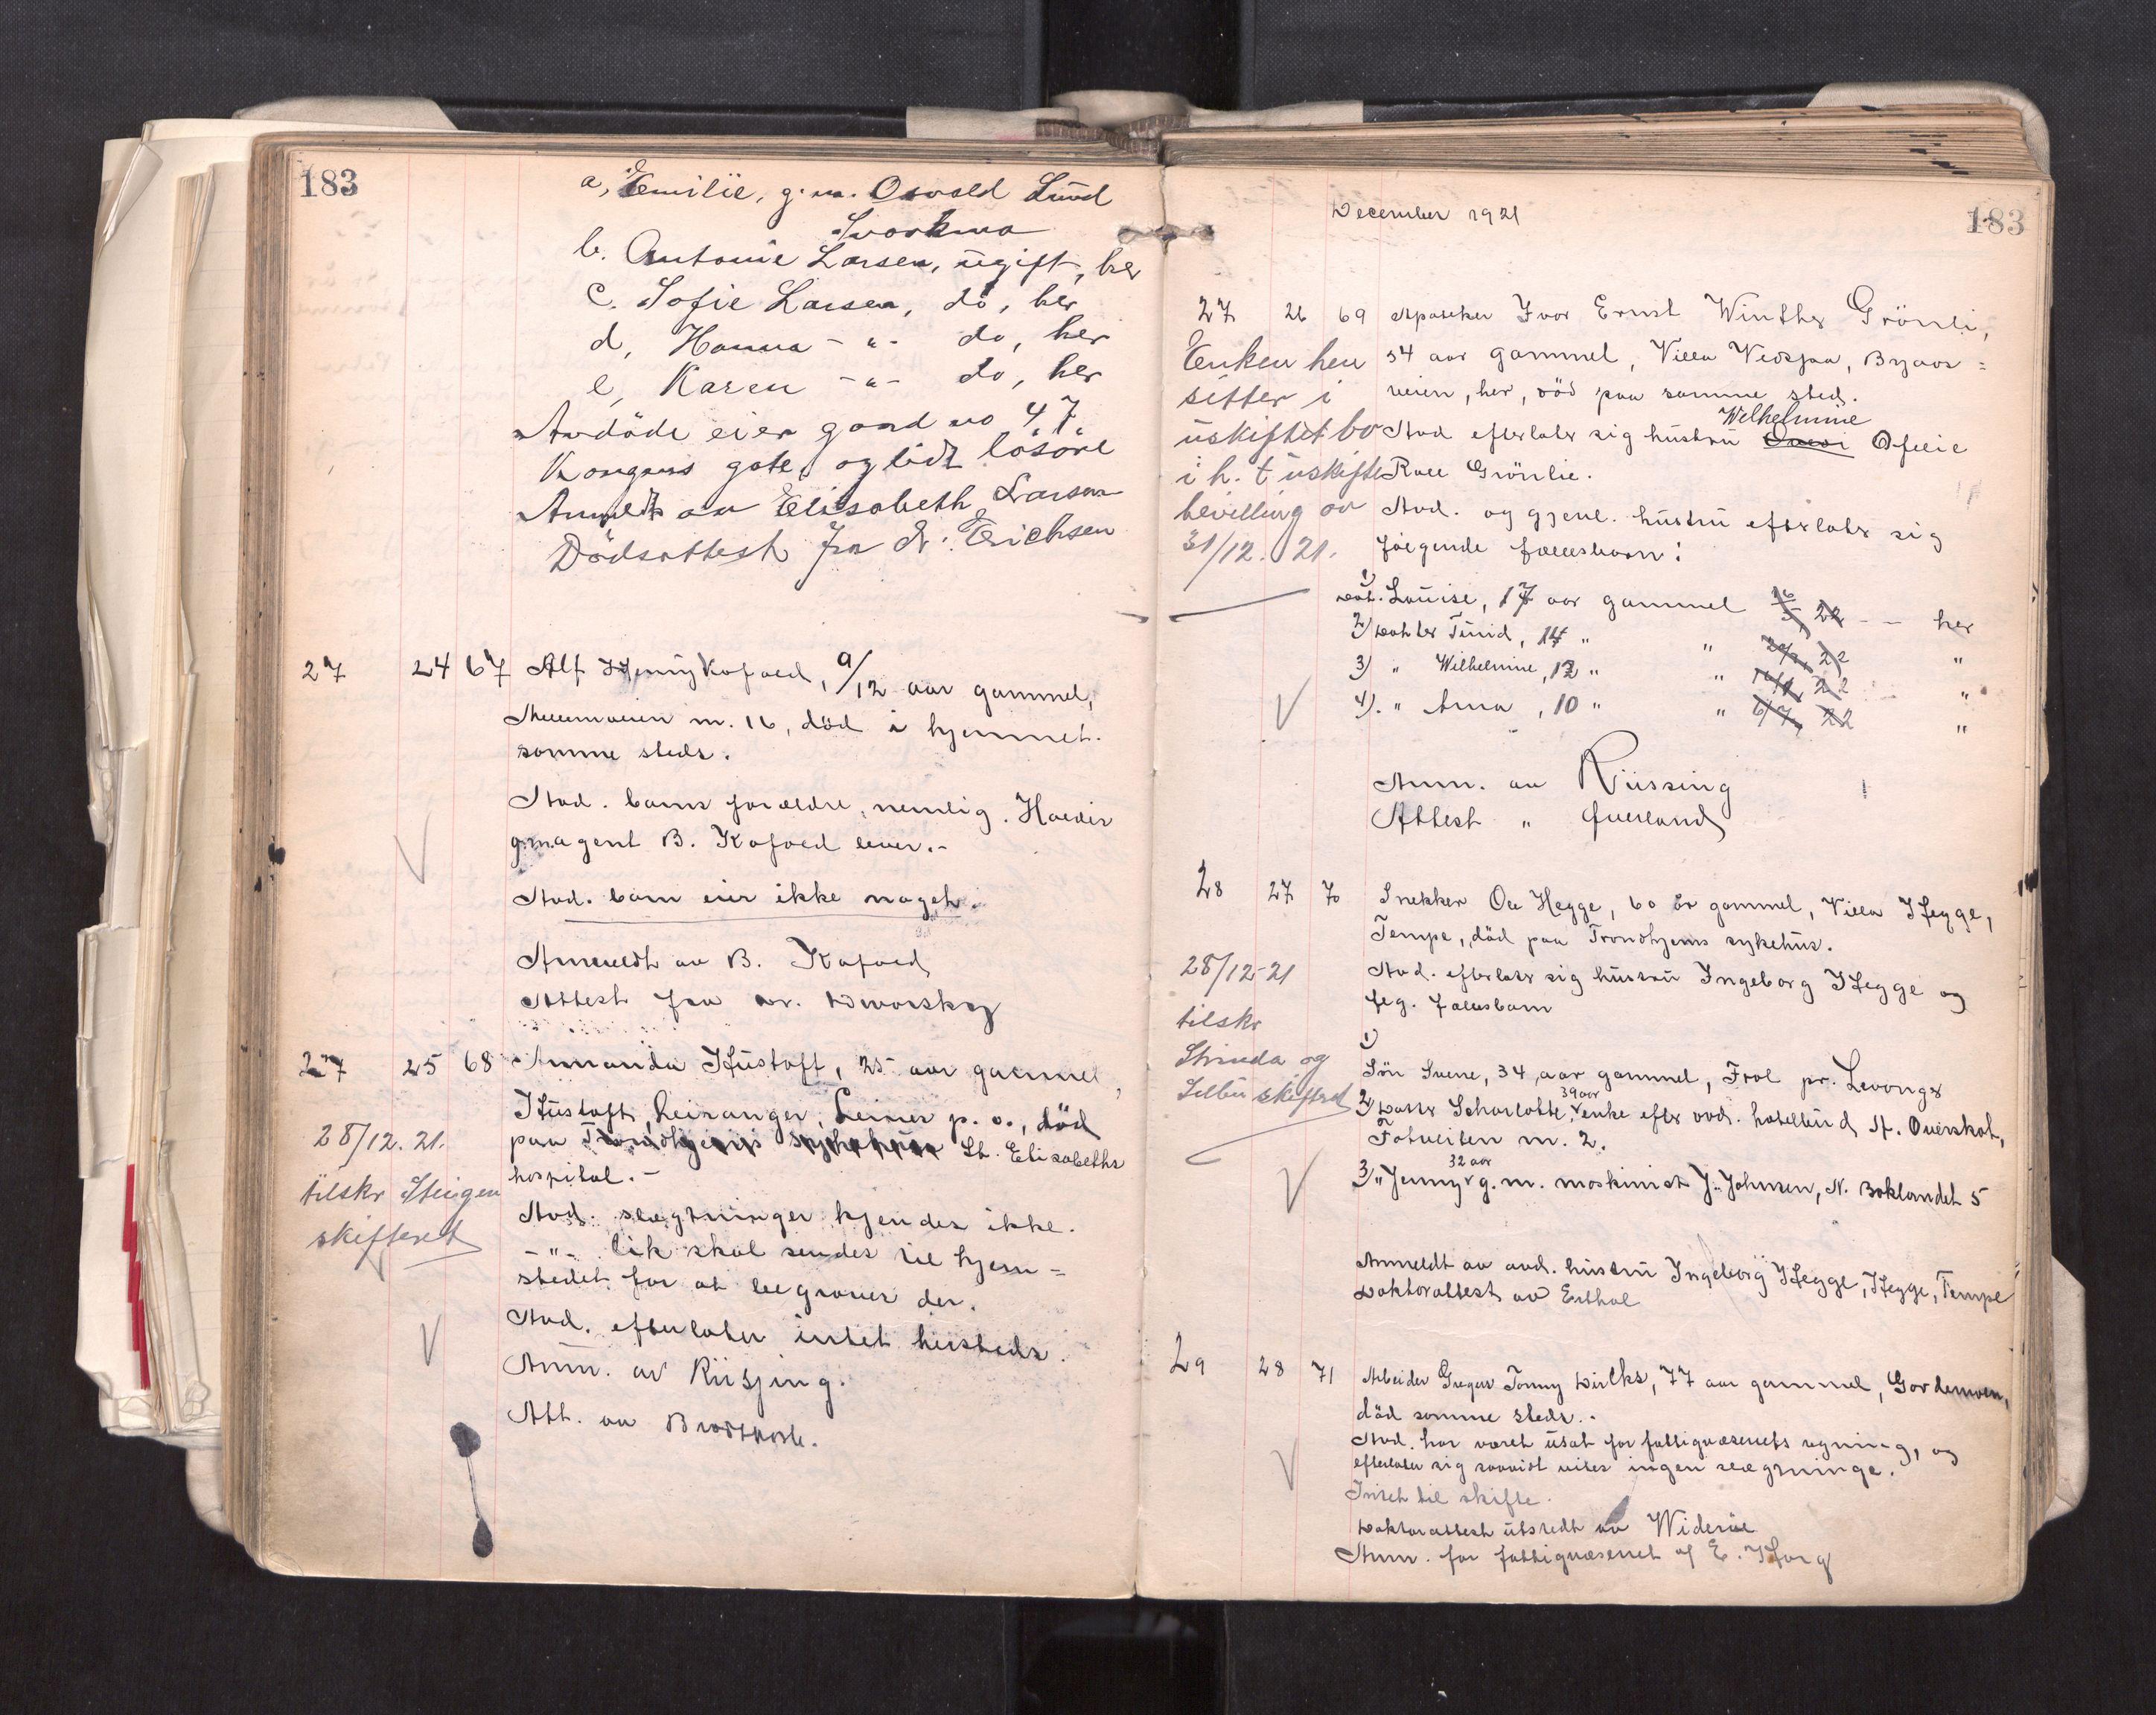 183
a, Emilie, g. m. Osvald Lund
Svorkmo
b. Antonie Larsen, ugift, her
c. Sofie Larsen, do, her
d, Hanna -"- do, her
e, Karen -"- do, her
Avdöde eier gaard no 47
Kongens gate, og lidt lösöre
Anmeldt av Elisabeth Larsen
Dödsattest fra dr. Erichsen
27 24 67 Alf Henny Kofoed, 9/12 aar gammel,
Mellemveien nr. 16, död i hjemmet
samme steds.
Avd. barns forældre, nemlig. Hardis
g.m. agent B. Kofoed lever.-
Avd. barn eier ikke noget.
Anmeldt av B. Kofoed
Attest fra dr. Dworsky
27 25 68 Amanda Hustoft, 25 aar gammel,
Hustoft, Leiranger, Leines p. o., död
28/12. 21.
paa Trondhjems sykehus St. Elisabeths
hospital.-
tilskr Steigen
skifteret
Avd. slegtninger kjendes ikke.
-"- lik skal sendes til hjem=
stedet for at begraves der.
Avd. efterlater intet hersteds.
Anm. av Riising.
Att. av
December 1921
183
27 26 69 Apoteker Ivar Ernst Winther Grönli,
Enken hen
sitter i
uskiftet bo
i h. t uskifte
bevilling av
31/12. 21.
54 aar gammel, Villa Vidsyn, Byaas=
veien, her, död paa samme sted.
Wilhelmine
Avd efterlater sig hustru Ofelie
Roll Grönlie.
Avd. og gjenl. hustru efterlater sig
følgende fellesbarn:
1) Dat. Louise, 17 aar gammel 16/5 22 - - her
2) Datter Turid, 14 " " 22 "
3) " Wilhelmine, 12 " " 22 "
4). " Anna, 10 " " 6/7 22 "
Anm. av Riissing
Attest " Querland
28 27 70 Snekker Ole Hegge, 60 år gammel, Villa Hegge,
Tempe, död paa Trondhjems sykehus.
28/12-21
tilskr
Strinda og
Selbu skifteret
Avd. efterlater sig hustru Ingeborg Hegge og
flg. fællesbarn
1)
Sön Sverre, 34 aar gammel, Frol pr. Levanger
39 aar
2) Datter Scharlotte, enke efter avd. hotelbud A. Overskot,
Totveiten nr. 2.
32 aar
3) " Jenny g. m. maskinist J. Johnsen, N. Baklandet 5
Anmeldt av avd. hustru Ingeborg Hegge, Hegge, Tempe
Doktorattest av Enthal
29 28 71 Arbeider Gregus Tonny Dirks, 77 aar gammel, Gardemoen,
död samme steds.
Avd. har været utsat for fattigvæsenets regning, og
efterlater sig saavidt vites ingen slegtninge.
Intet til skifte.
Doktorattest utstedt av Wideröe
Anm. for fattigvæsenet af E. Haug